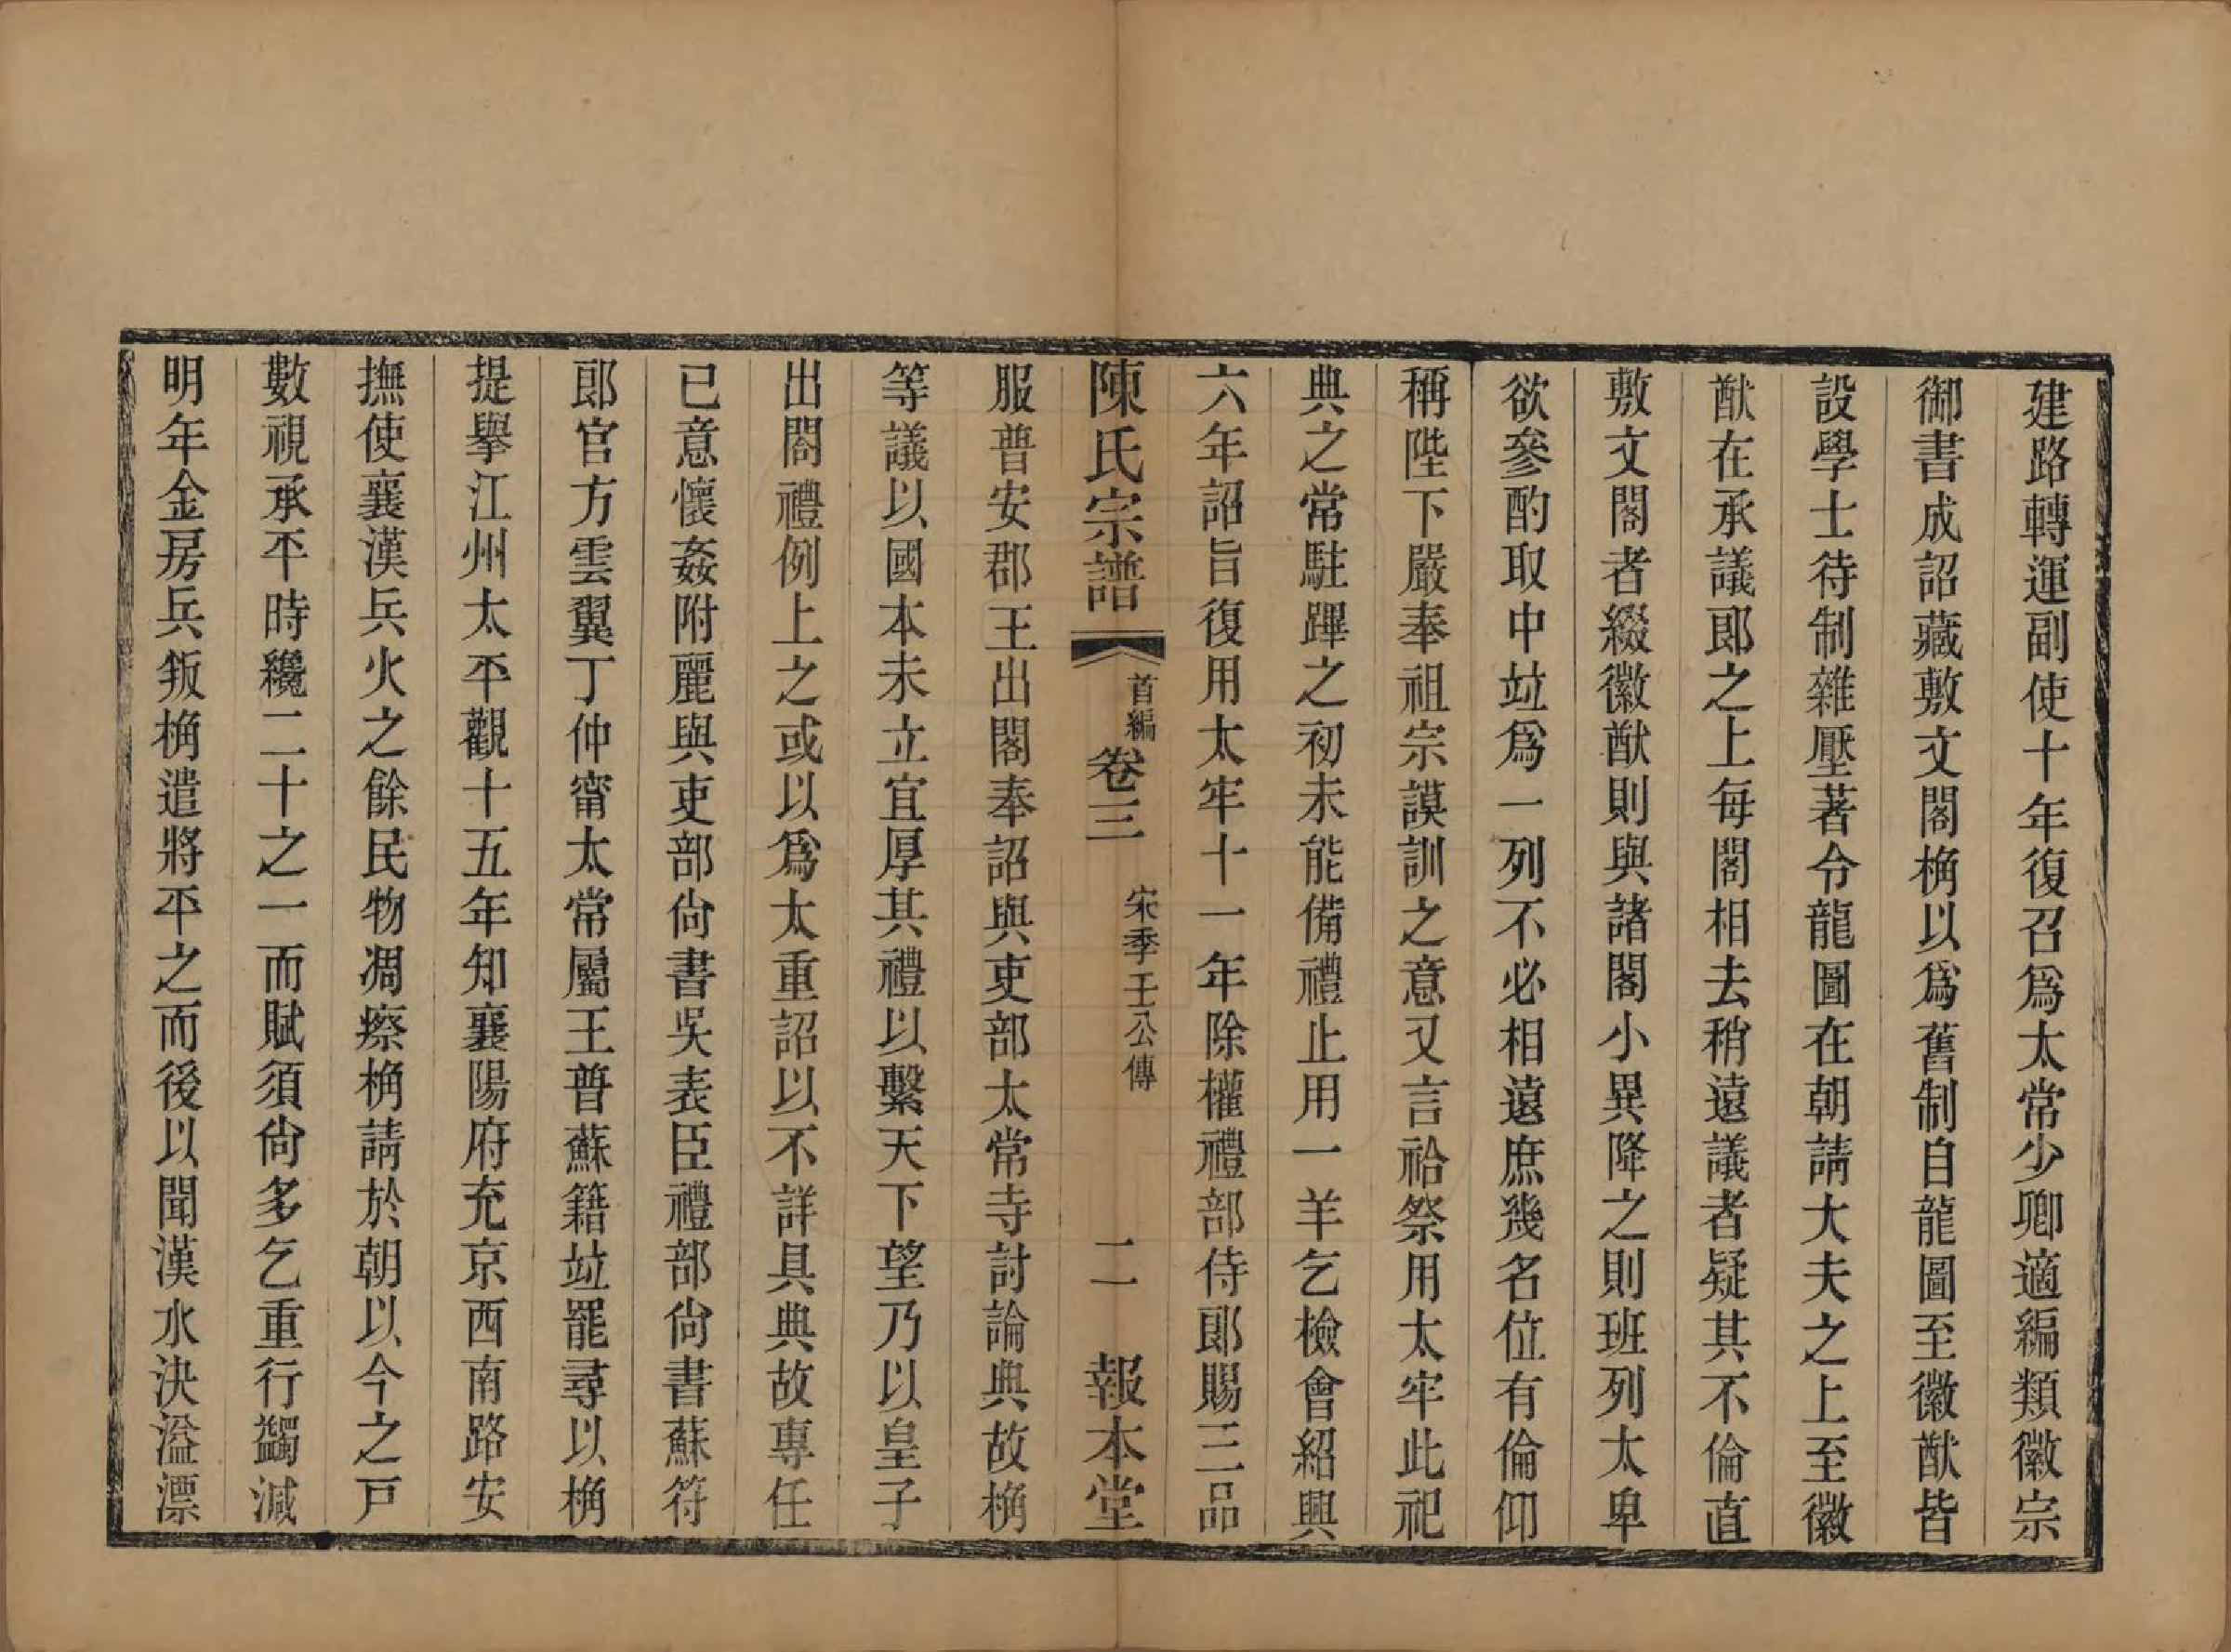 建路轉運副使十年復召爲太常少卿適編類徽宗
御書成詔藏敷文閣桷以爲舊制自龍圖至徽猷皆
設學士待制雜壓著令龍圖在朝請大夫之上至徽
猷在承議郎之上每閣相去稍遠議者疑其不倫直
敷文閣者綴徽猷則與諸閣小異降之則班列太卑
欲參酌取中竝爲一列不必相遠庶幾名位有倫仰
稱陛下嚴奉祖宗謨訓之意又言祫祭用太牢此祀
典之常駐蹕之初未能備禮止用一羊乞檢會紹興
六年詔旨復用太牢十一年除權禮部侍郎賜三品
陳氏宗譜 首編 卷三 宋季壬公傳 二 報本堂
服普安郡王出閣奉詔與吏部太常寺討論典故桷
等議以國本未立宜厚其禮以繫天下望乃以皇子
出閤禮例上之或以爲太重詔以不詳具典故專任
已意懷姦附麗與吏部尙書吳表臣禮部尙書蘇符
郎官方雲翼丁仲甯太常屬王普蘇籍竝罷尋以桷
提擧江州太平觀十五年知襄陽府充京西南路安
撫使襄漢兵火之餘民物凋瘵桷請於朝以今之戸
數視承平時纔二十之一而賦須尙多乞重行蠲減
明年金房兵叛桷遣將平之而後以聞漢水決溢漂